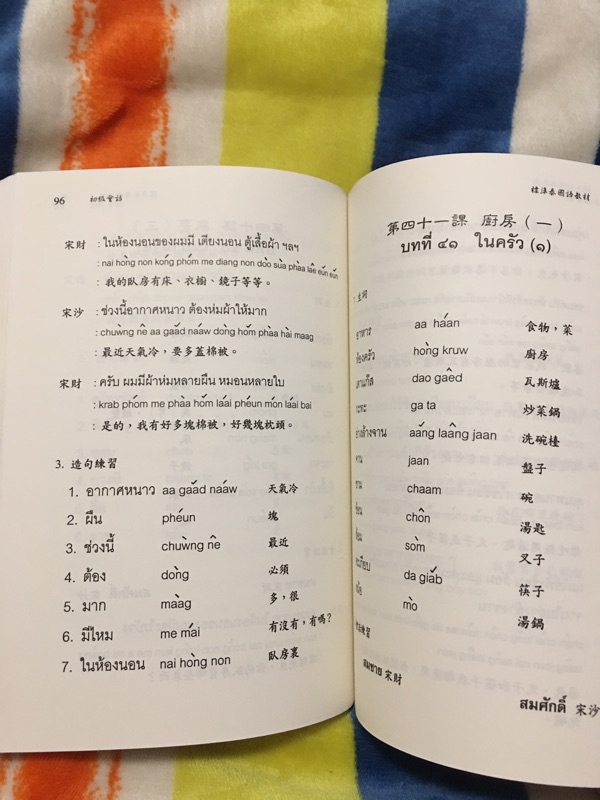 96 初級會話
宋財 : ในห้องนอนของผมมี เตียงนอน ตู้เสื้อผ้า ฯลฯ
: nai hòng non kong phǒm me diang non dòo sùa phàa
: 我的臥房有床、衣櫥、鏡子等等。
宋沙 : ช่วงนี้อากาศหนาว ต้องห่มผ้าให้มาก
: chuẁng nê aa gaád naáaw dòng hóm phàa hài maag
: 最近天氣冷,要多蓋棉被。
宋財 : ครับ ผมมีผ้าห่มหลายผืน หมอนหลายใบ
: krab phóm me phàa hóm láai phéun món láai bai
: 是的,我有好多塊棉被,好幾塊枕頭。
3. 造句練習
1. อากาศหนาว aa gaád naáw 天氣冷
2. ผืน phéun 塊
3. ช่วงนี้ chuẁng nê 最近
4. ต้อง dòng 必須
5. มาก màag 多,很
6. มีไหม me mái 有沒有,有嗎?
7. ในห้องนอน nai hòng non 臥房裏
標準泰國語教材
第四十一課 廚房(一)
บทที่ ๔๑ ในครัว (๑)
aa háan 食物,菜
hòng kruw 廚房
dao gaêd 瓦斯爐
ga ta 炒菜鍋
aáng laâng jaan 洗碗檯
jaan 盤子
chaam 碗
chôn 湯匙
sòm 叉子
da giáb 筷子
mò 湯鍋
สมชาย 宋財
สมศักดิ์ 宋沙